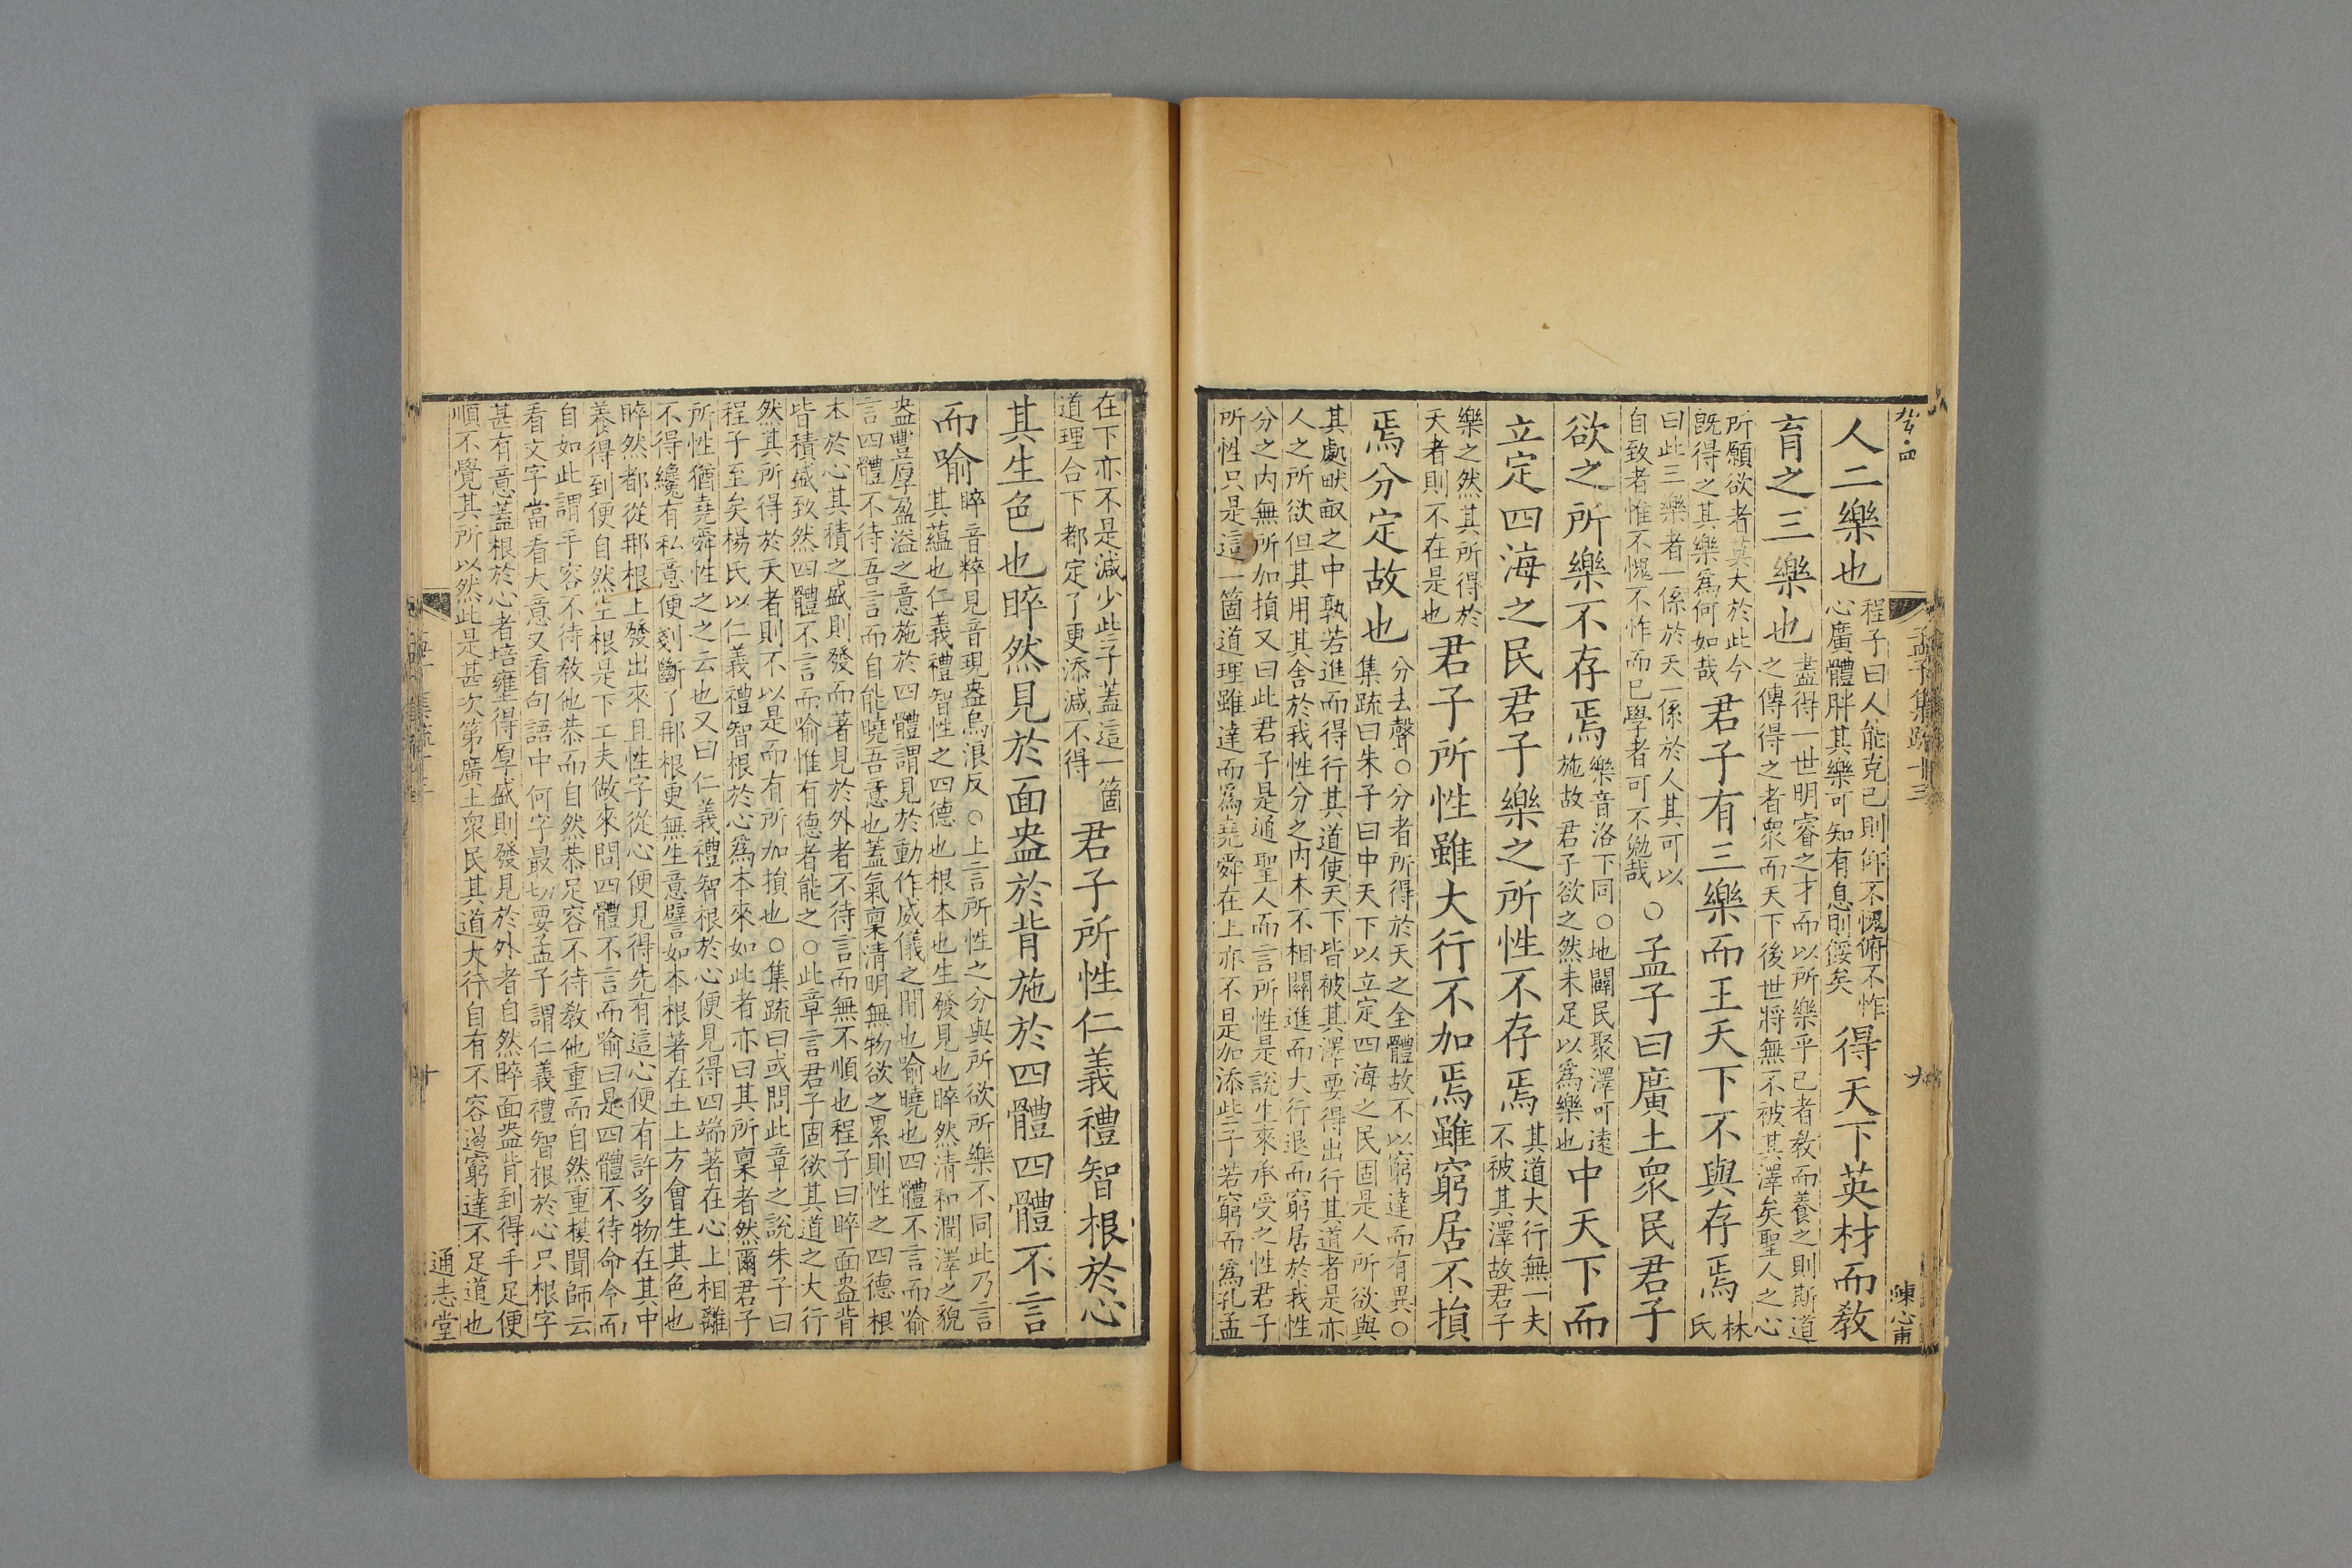 孟子集疏十三
九
陳心甫
人二樂也程子曰人能克己則仰不愧俯不怍心廣體胖其樂可知有息則餒矣得天下英材而教
育之三樂也盡得一世明睿之才而以所樂乎己者教而養之則斯道之傳得之者衆而天下後世將無不被其澤矣聖人之心
所願欲者莫大於此今既得之其樂爲何如哉君子有三樂而王天下不與存焉林氏
曰此三樂者一係於天一係於人其可以自致者惟不愧不怍而已學者可不勉哉○孟子曰廣土衆民君子
欲之所樂不存焉樂音洛下同○地闢民聚澤可遠施故君子欲之然未足以爲樂也中天下而
立定四海之民君子樂之所性不存焉其道大行無一夫不被其澤故君子
樂之然其所得於天者則不在是也君子所性雖大行不加焉雖窮居不損
焉分定故也分去聲○分者所得於天之全體故不以窮達而有異○集疏曰朱子曰中天下以立定四海之民固是人所欲與
其處畎畝之中孰若進而得行其道使天下皆被其澤要得出行其道者是亦人之所欲但其用其舍於我性分之内本不相關進而大行退而窮居於我性
分之内無所加損又曰此君子是通聖人而言所性是說生來承受之性君子所性只是這一箇道理雖達而爲堯舜在上亦不是加添些子若窮而爲孔孟
在下亦不是減少些子蓋這一箇道理合下都定了更添減不得君子所性仁義禮智根於心
其生色也睟然見於面盎於背施於四體四體不言
而喻睟音粹見音現盎烏浪反○上言所性之分與所欲所樂不同此乃言其蘊也仁義禮智性之四德也根本也生發見也睟然清和潤澤之貌
盎豐厚盈溢之意施於四體謂見於動作威儀之間也喻曉也四體不言而喻言四體不待吾言而自能曉吾意也蓋氣稟清明無物欲之累則性之四德根
本於心其積之盛則發而著見於外者不待言而無不順也程子曰睟面盎背皆積盛致然四體不言而喻惟有德者能之○此章言君子固欲其道之大行
然其所得於天者則不以是而有所加損也○集疏曰或問此章之說朱子曰程子至矣楊氏以仁義禮智根於心爲本來如此者亦曰其所稟者然爾君子
所性猶堯舜性之之云也又曰仁義禮智根於心便見得四端著在心上相離不得纔有私意便剗斷了那根更無生意譬如木根著在土上方會生其色也
睟然都從那根上發出來且性字從心便見得先有這心便有許多物在其中養得到便自然生根是下工夫做來問四體不言而喻曰是四體不待命令而
自如此謂手容不待教他恭而自然恭足容不待教他重而自然重模聞師云看文字當看大意又看句語中何字最切要孟子謂仁義禮智根於心只根字
甚有意蓋根於心者培壅得厚盛則發見於外者自然睟面盎背到得手足便順不覺其所以然此是甚次第廣土衆民其道大行自有不容遏窮達不足道也
十
通志堂